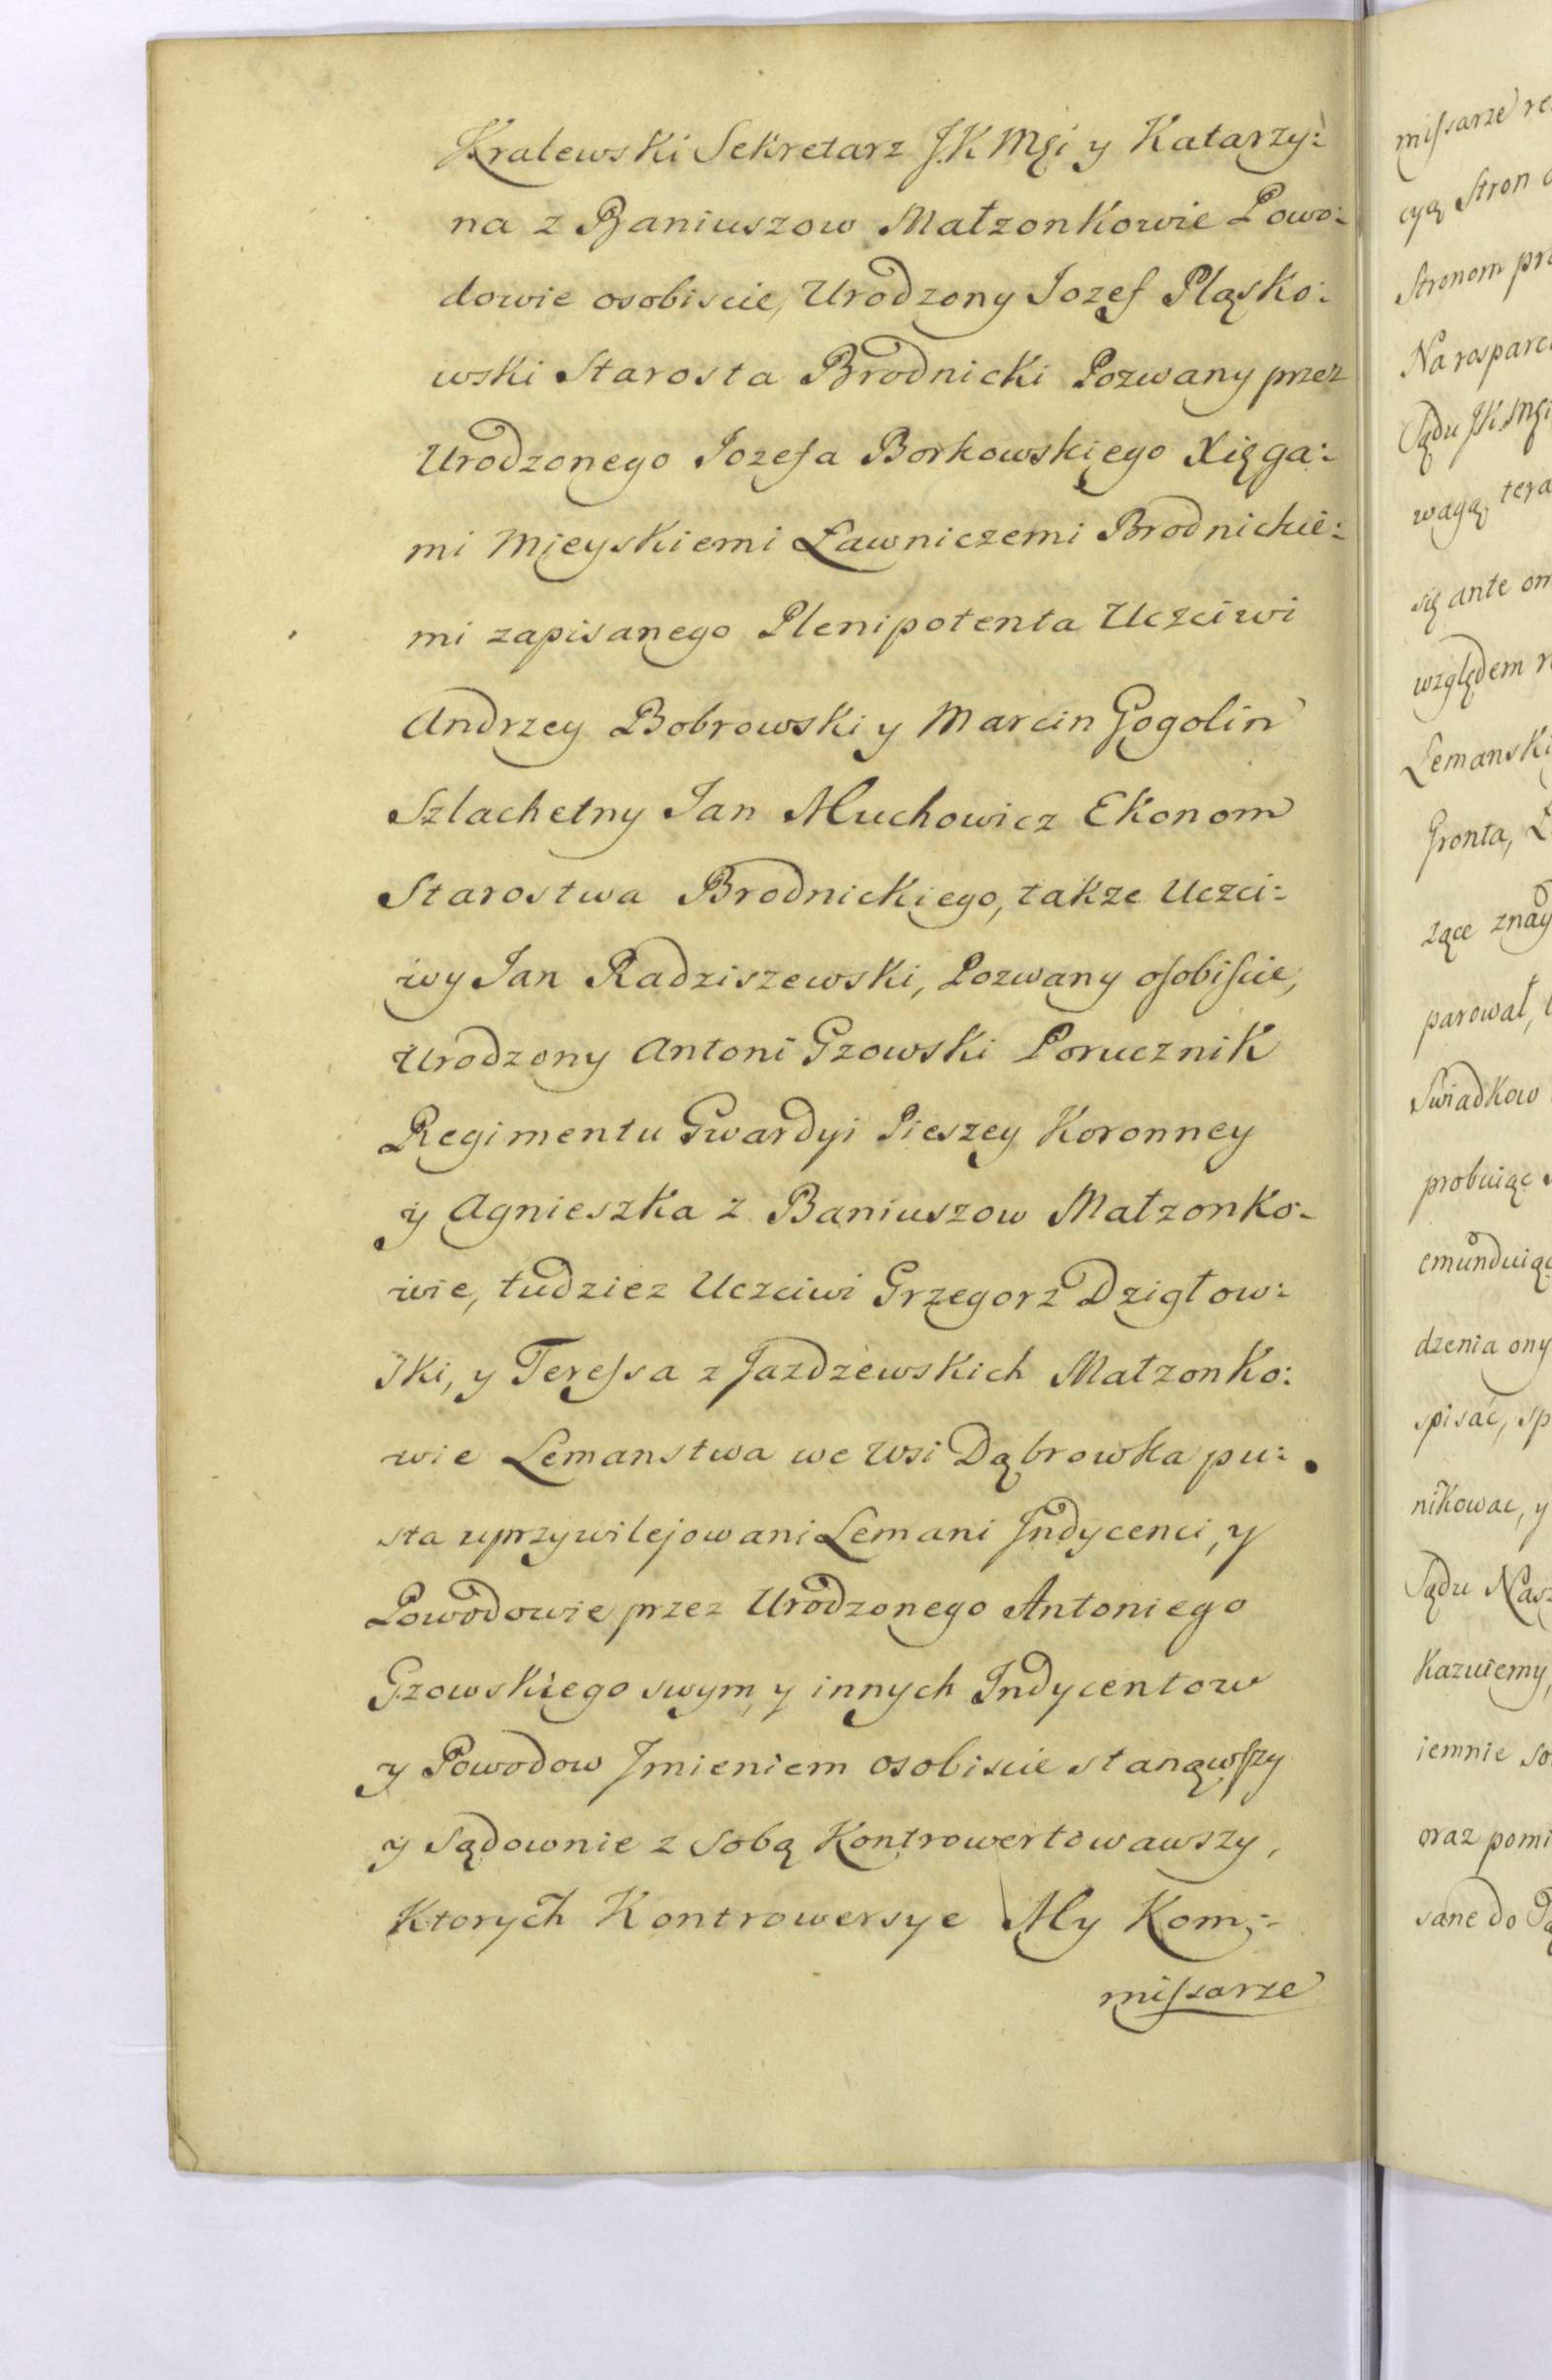 Kralewski Sekretarz J.K Mści y Katarzy:
na z Baniuszow Małzonkowie Powo:
dowie osobiscie, Urodzony Jozef Pląsko:
wski Starosta Brodnicki Pozwany przez
Urodzonego Jozefa Borkowskiego Xięga:
mi Mieyskiemi Ławniczemi Brodnickie:
mi zapisanego Plenipotenta Uczciwi
Andrzey Bobrowski y Marcin Gogolin
Szlachetny Jan Muchowicz Ekonom
Starostwa Brodnickiego, takze Uczci:
wy Jan Radziszewski, Pozwany osobiscie,
Urodzony Antoni Gzowski Porucznik
Regimentu Gwardyi Pieszey Koronney
y Agnieszka z Baniuszow Małzonko:
wie, tudziez Uczciwi Grzegorz Dzigłow:
ski, y Teressa z Jazdzewskich Małzonko:
wie Lemanstwa we Wsi Dąbrowka pu:
sta uprzywilejowani Lemani Jndycenci, y
Powodowie przez Urodzonego Antoniego
Gzowskiego swym, y innych Jndycentow
y Powodow Jmieniem osobiscie stanąwszy
y Sądownie z sobą Kontrowertowawszy,
Ktorych Kontrowersye My Kom:
missarze
missarze
cyą Stron
Stronom
Na
Sądu JK Mści
wagą,
się ante
względem
Gronta,
żące
parował,
Swiadkow
probuiąc
dzenia
spisać,
nikowac, y
Sądu
Kazuiemy,
iemnie
oraz
sane do